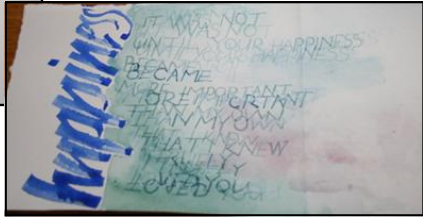 Happiness
IT WAS NOT
UNTIL YOUR HAPPINESS
BECAME
MORE IMPORTANT
THAN MY OWN
THAT I KNEW
I TRULY
LOVED YOU